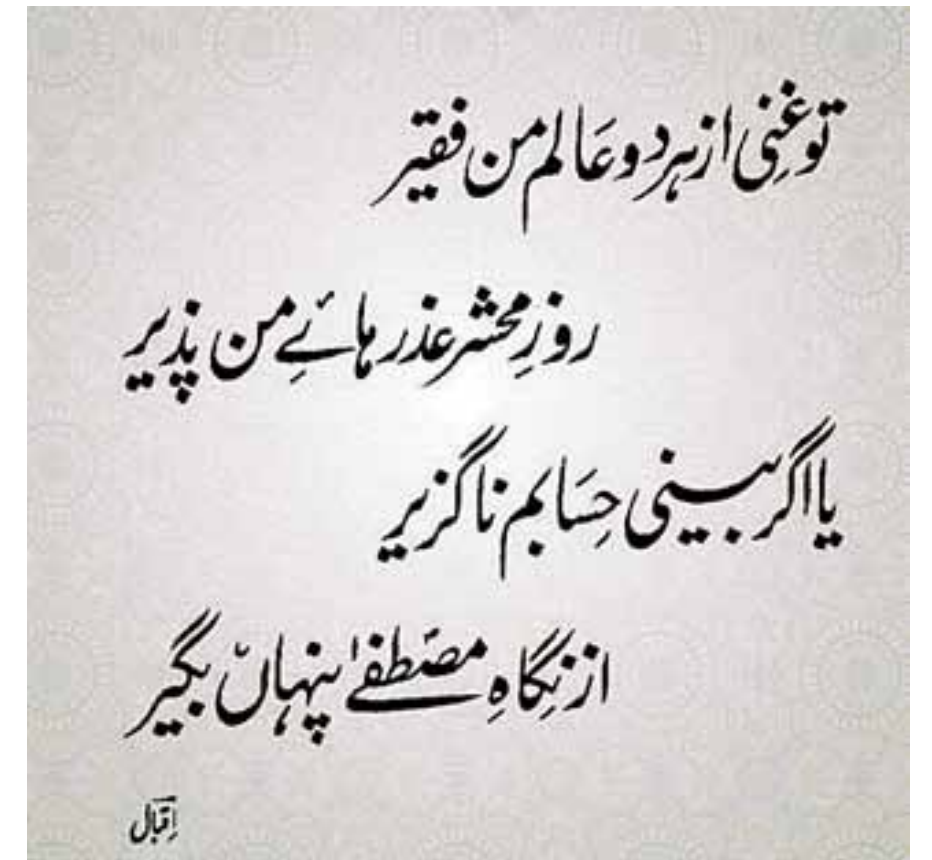 تو غنِی از ہر دو عَالم من فقیر
روزِ محشر عذر ہائےِ من پذیر
یا اگر بینی حِسَابم نا گزیر
از نِگاہِ مصَطفےٰ پنہاںؔ بگیر
اِقبَال